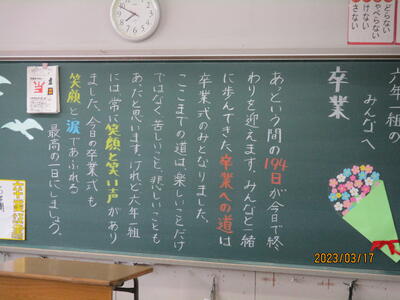 六年一組の
みんなへ
卒業
あっという間の194日が、今日で終
わりを迎えます。みんなと一緒
に歩んできた、卒業への道は
卒業式のみとなりました。
ここまでの道は、楽しいことだけ
ではなく苦しいこと、悲しいことも
あったと思います。けれど六年一組
には常に笑顔と笑い声があり
ました。今日の卒業式も
笑顔と涙であふれる
最高の一日にしましょう。
さわらない
しゃべらない
かけない
おさない
2023/03/17